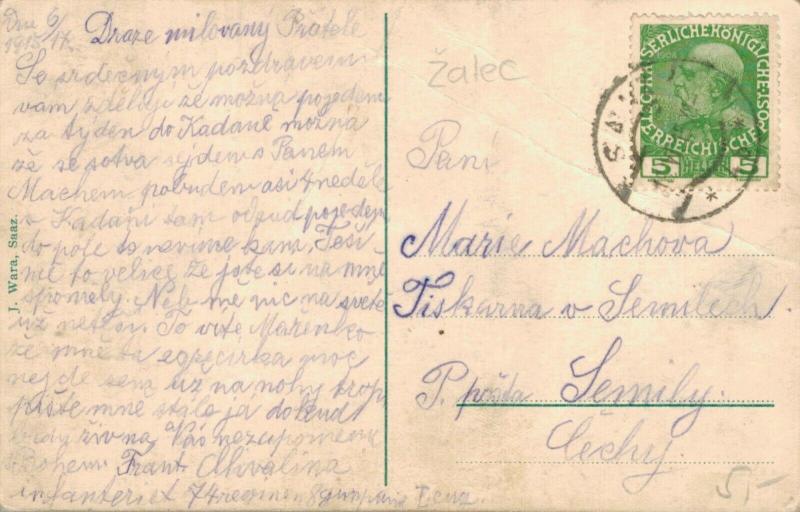 Dne 6/
1915/17. Draze milovaný Přátele
Se srdečným pozdravem
vam zděluji že možna pojedem
za tyden do Kadaně možna
že se sotva sejdem s Panem
Machem pobudem asi 4 neděle
v Kadani tam odtud pojedem
do pole to nevíme kam, Těší
mě to velice že jste si na mně
spomely. Neb mě nic na světě
už netěší. To víte Mařenko
že mně ta moc
nejde sem už na nohy
pište mne stale ja dokud
budu živ na Vás nezapomenu
s Bohem Frant. Chvalina
infanteriet 74 regimen 8 Zeuz.
J. Wara, Saaz.
Žalec
KAISERLICHE KÖNIGLICHE
ÖSTERREICHISCHE
1908
5 HELLER 5
SAAZ
Paní
Marie Machova
Tiskarna v Semilech
P. pošta Semily
Čechy
5,-